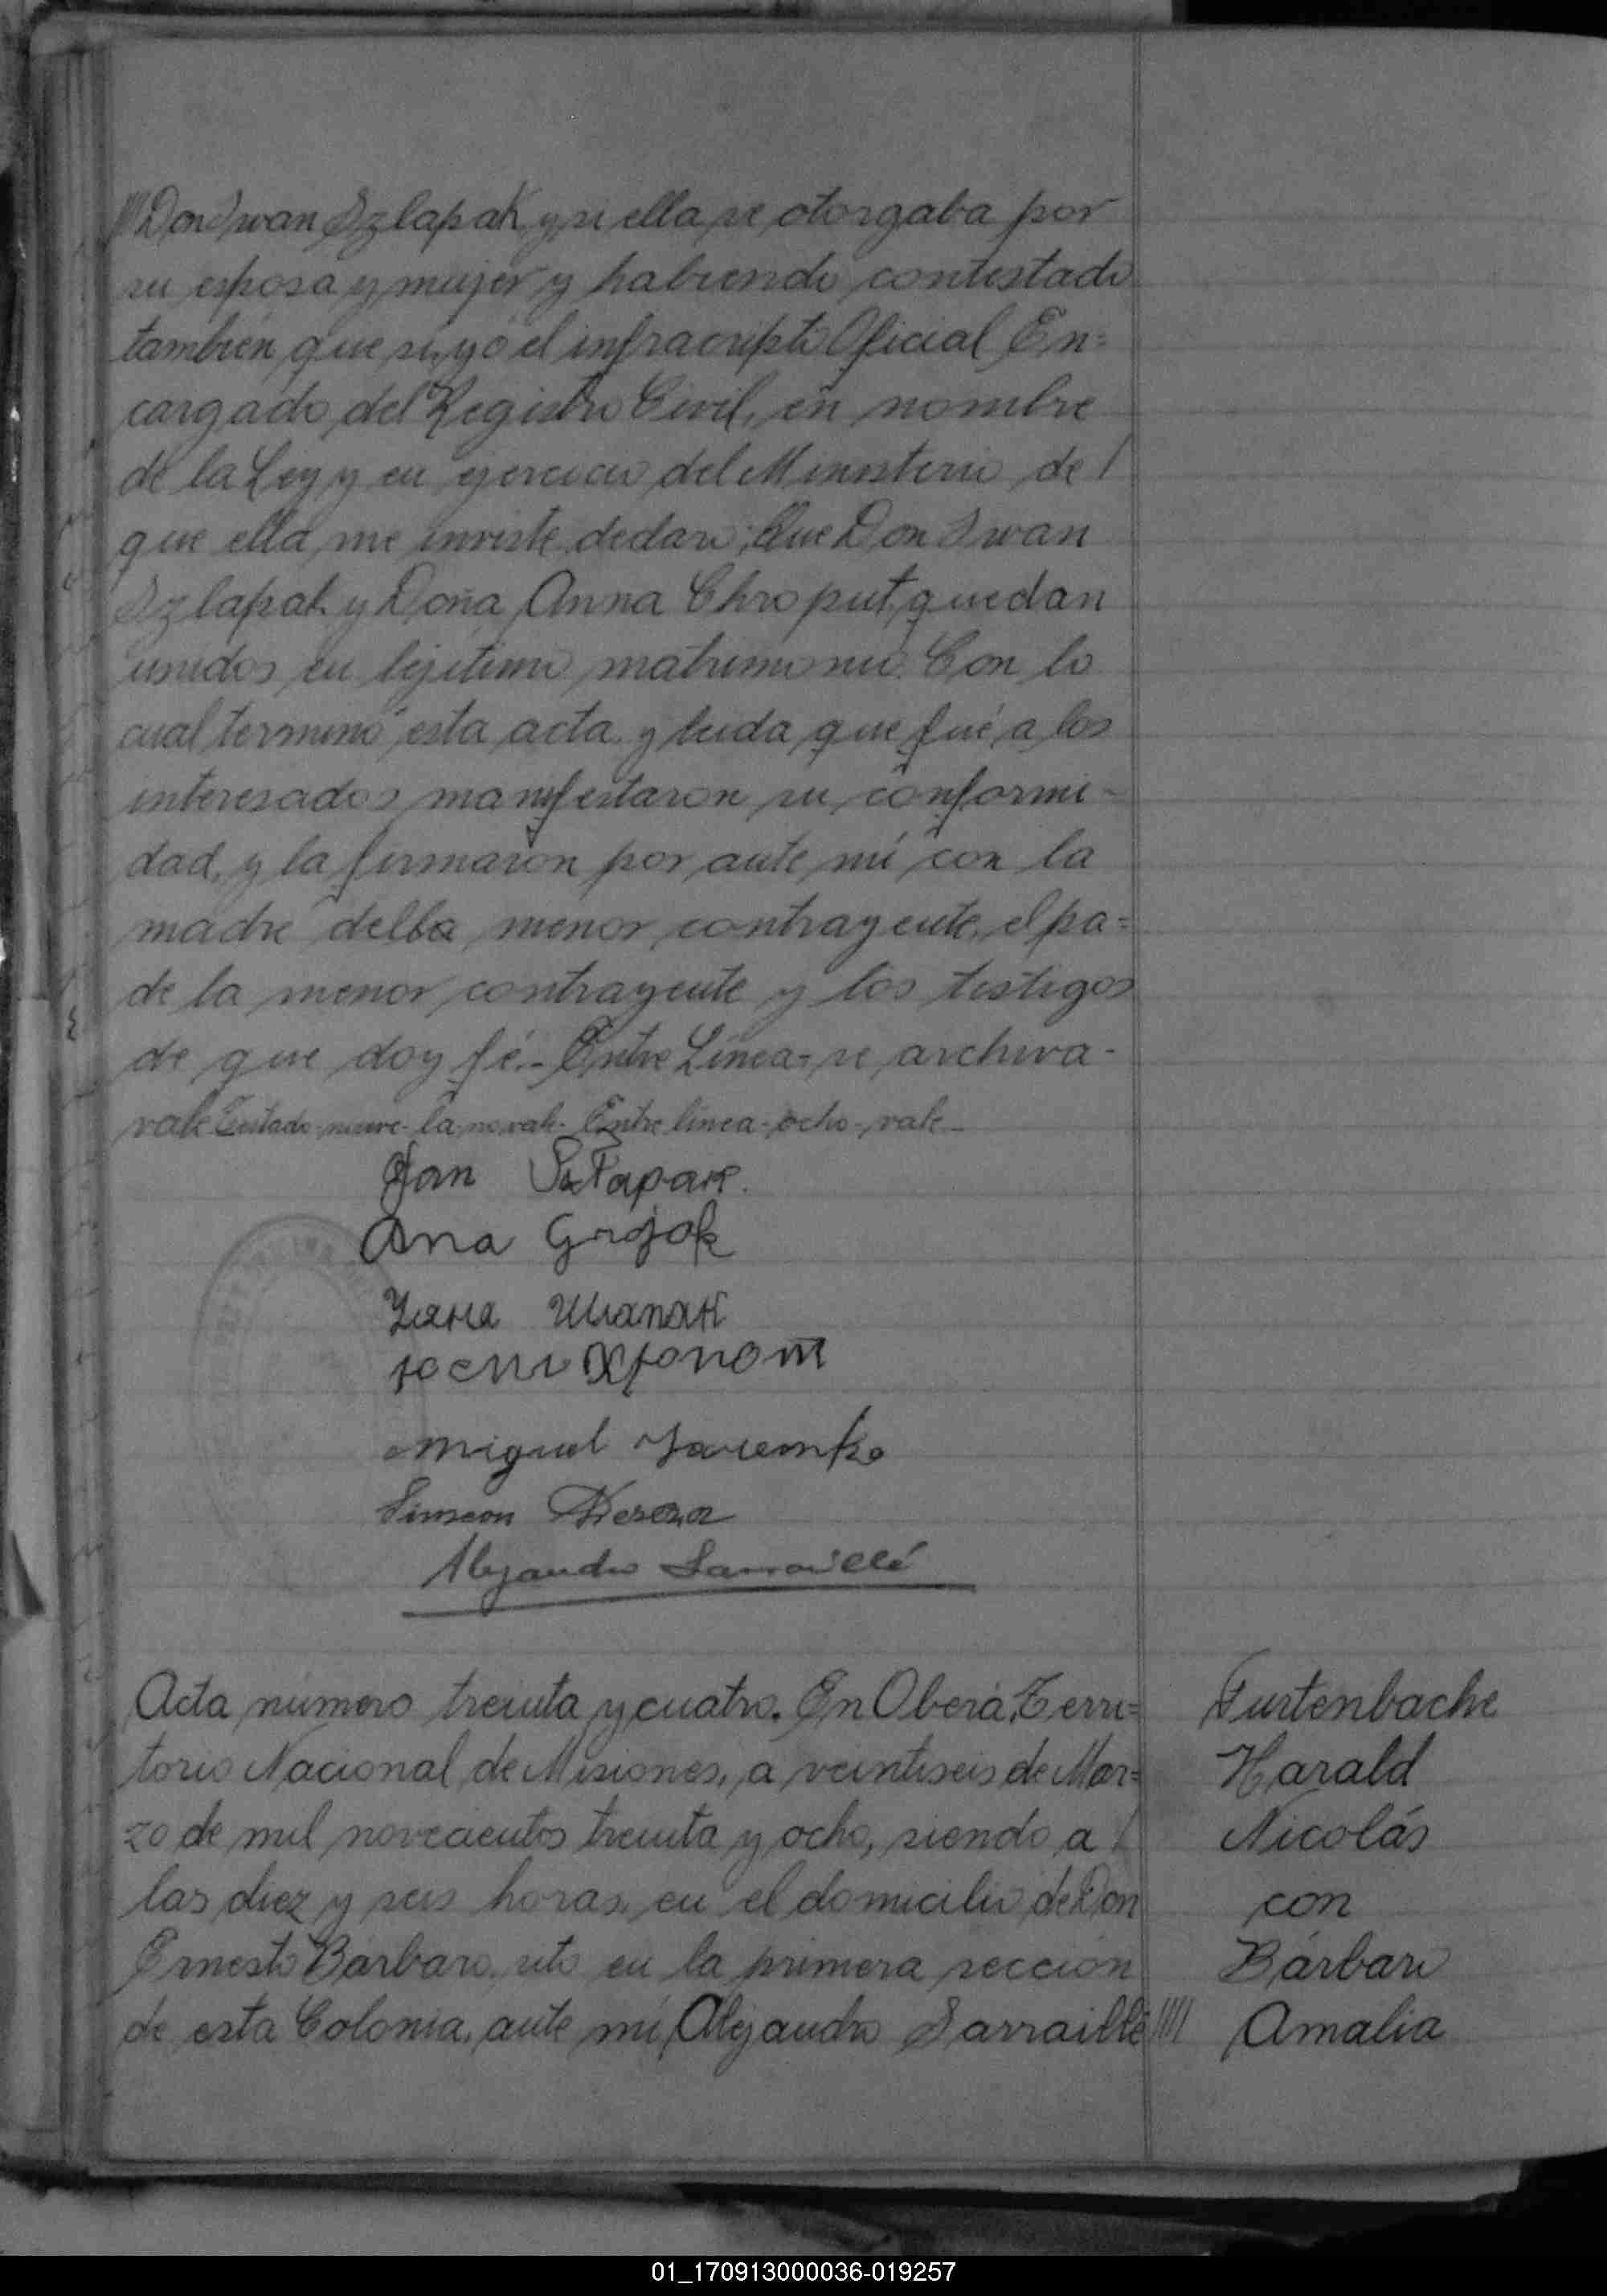 //// Don Iwan Szlapak, y si ella se otorgaba por
su esposa y mujer y habiendo contestado
también que si, yo el infracripto Oficial En=
cargado del Registro Civil, en nombre
de la Ley y en ejercicio del Ministerio de /
que ella me inviste declaro; Que Don Iwan
Szlapak y Doña Anna Chroput, quedan
unidos en lejitimo matrimonio. Con lo
cual terminó esta acta y leida que fué a los
interesados manifestaron su conformi-
dad, y la firmaron por ante mi con la
madre della menor contrayente, el pa=
de la menor contrayente y los testigos
de que doy fé.- Entre Linea- se archiva-
vale Testado-nueve-la-no vale- Entre linea-ocho-vale-
Jan Szłapak.
Ana Grojok
Уляна Шлапак
Хропот
Miguel Jaremko
Simeon
Alejandro Sarraillé
Acta número treinta y cuatro. En Oberá, Terri=
torio Nacional de Misiones, a veintiseis de Mar=
zo de mil novecientos treinta y ocho, siendo a /
las diez y seis horas, en el domicilio de Don
Ernesto Bárbaro, sito en la primera sección
de esta Colonia, ante mi, Alejandro Sarraillé ////
Furtenbache
Harald
Nicolás
con
Bárbaro
Amalia
01_170913000036-019257